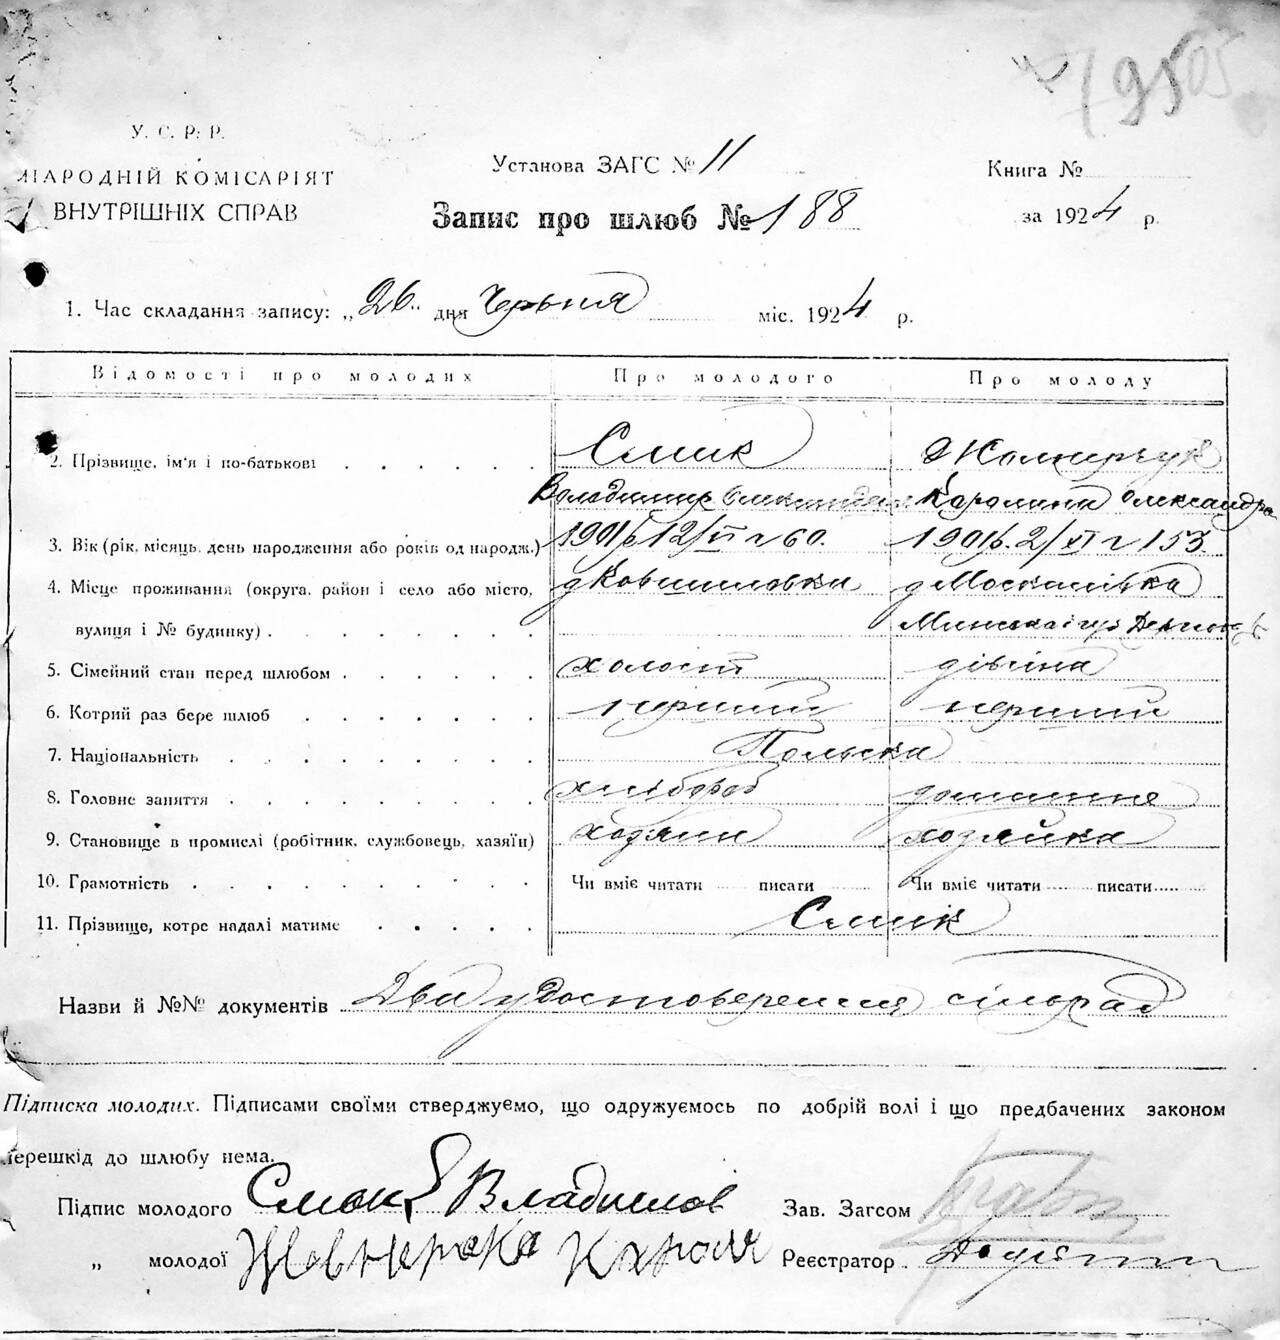 19505
У. С. Р. Р.
НАРОДНІЙ КОМІСАРІЯТ
ВНУТРІШНІХ СПРАВ
Установа ЗАГС № 11
Запис про шлюб № 188
Книга №
за 1924 р.
1. Час складання запису: „ 26 „ дня Червня міс. 1924 р.
Відомості про молодих Про молодого Про молоду
2. Прізвище, ім'я і по-батькові Смик
Володимир Каролина Олександр
3. Вік (рік, місяць, день народження або років од народж.) 1901 12/VI № 60. 1901 2/XI № 153
4. Місце проживання (округа, район і село або місто, д Москалівка
вулиця і № будинку)
5. Сімейний стан перед шлюбом холост дівіна
6. Котрий раз бере шлюб перший перший
7. Національність Польска
8. Головне заняття хлібороб домашнє
9. Становище в промислі (робітник, службовець, хазяїн) хозяин хозяйка
10. Грамотність Чи вміє читати писати Чи вміє читати писати
11. Прізвище, котре надалі матиме Смик
Назви й №№ документів Два удостоверения сільрад
Підписка молодих. Підписами своїми стверджуємо, що одружуємось по добрій волі і що предбачених законом
перешкід до шлюбу нема.
Підпис молодого Смик Владислов Зав. Загсом
„ молодої Реєстратор